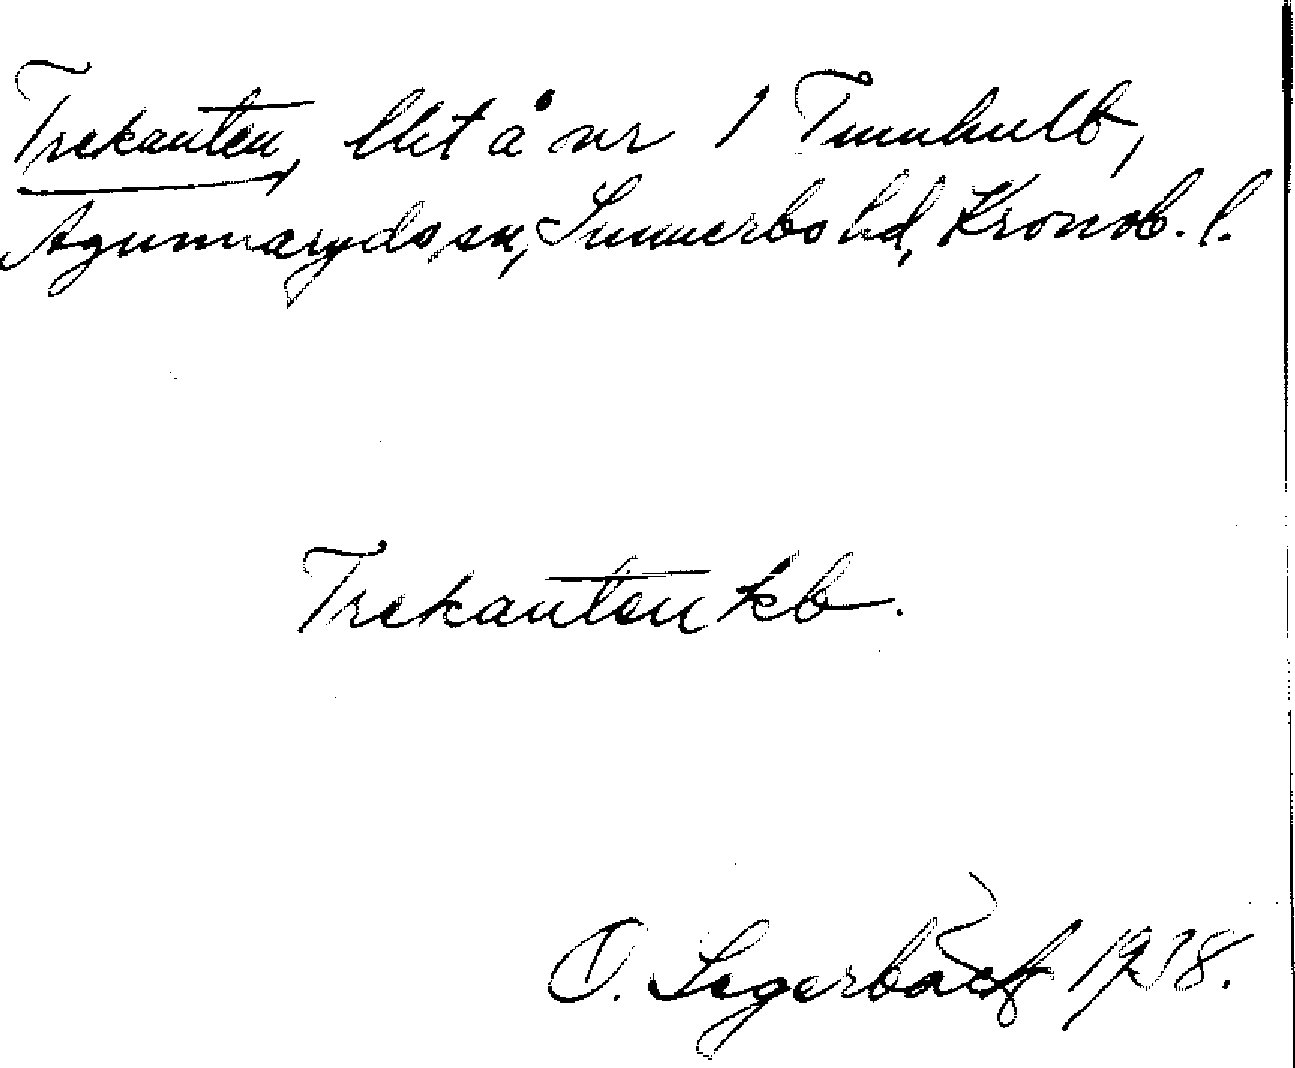 Trekanten, lht å nr 1 Tunhult,
Agunnaryds sn, Sunnerbo hd, Kronob. l.
Trekanten kb.
O. Segerbäck 1938.